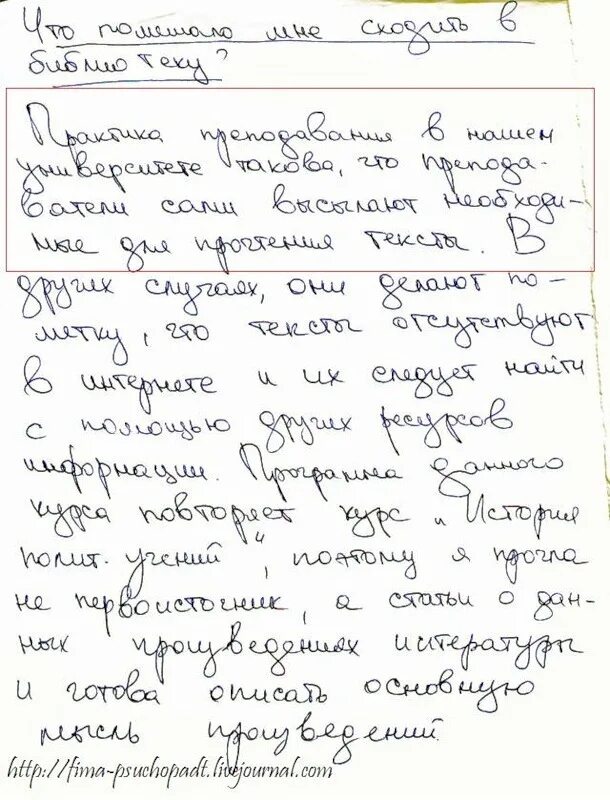 Что помешало мне сходить в
библиотеку?
Практика преподавания в нашем
университете такова, что препода-
ватели сами высылают необходи-
мые для прочтения тексты. В
других случаях, они делают по-
метку, что тексты отсутствуют
в интернете и их следует найти
с помощью других ресурсов
информации. Программа данного
курса повторяет курс „История
полит. учений“, поэтому я прочла
не первоисточник, а статьи о дан-
ных произведениях литературы
и готова описать основную
мысль произведений.
http://fima-psuchopadt.livejournal.com